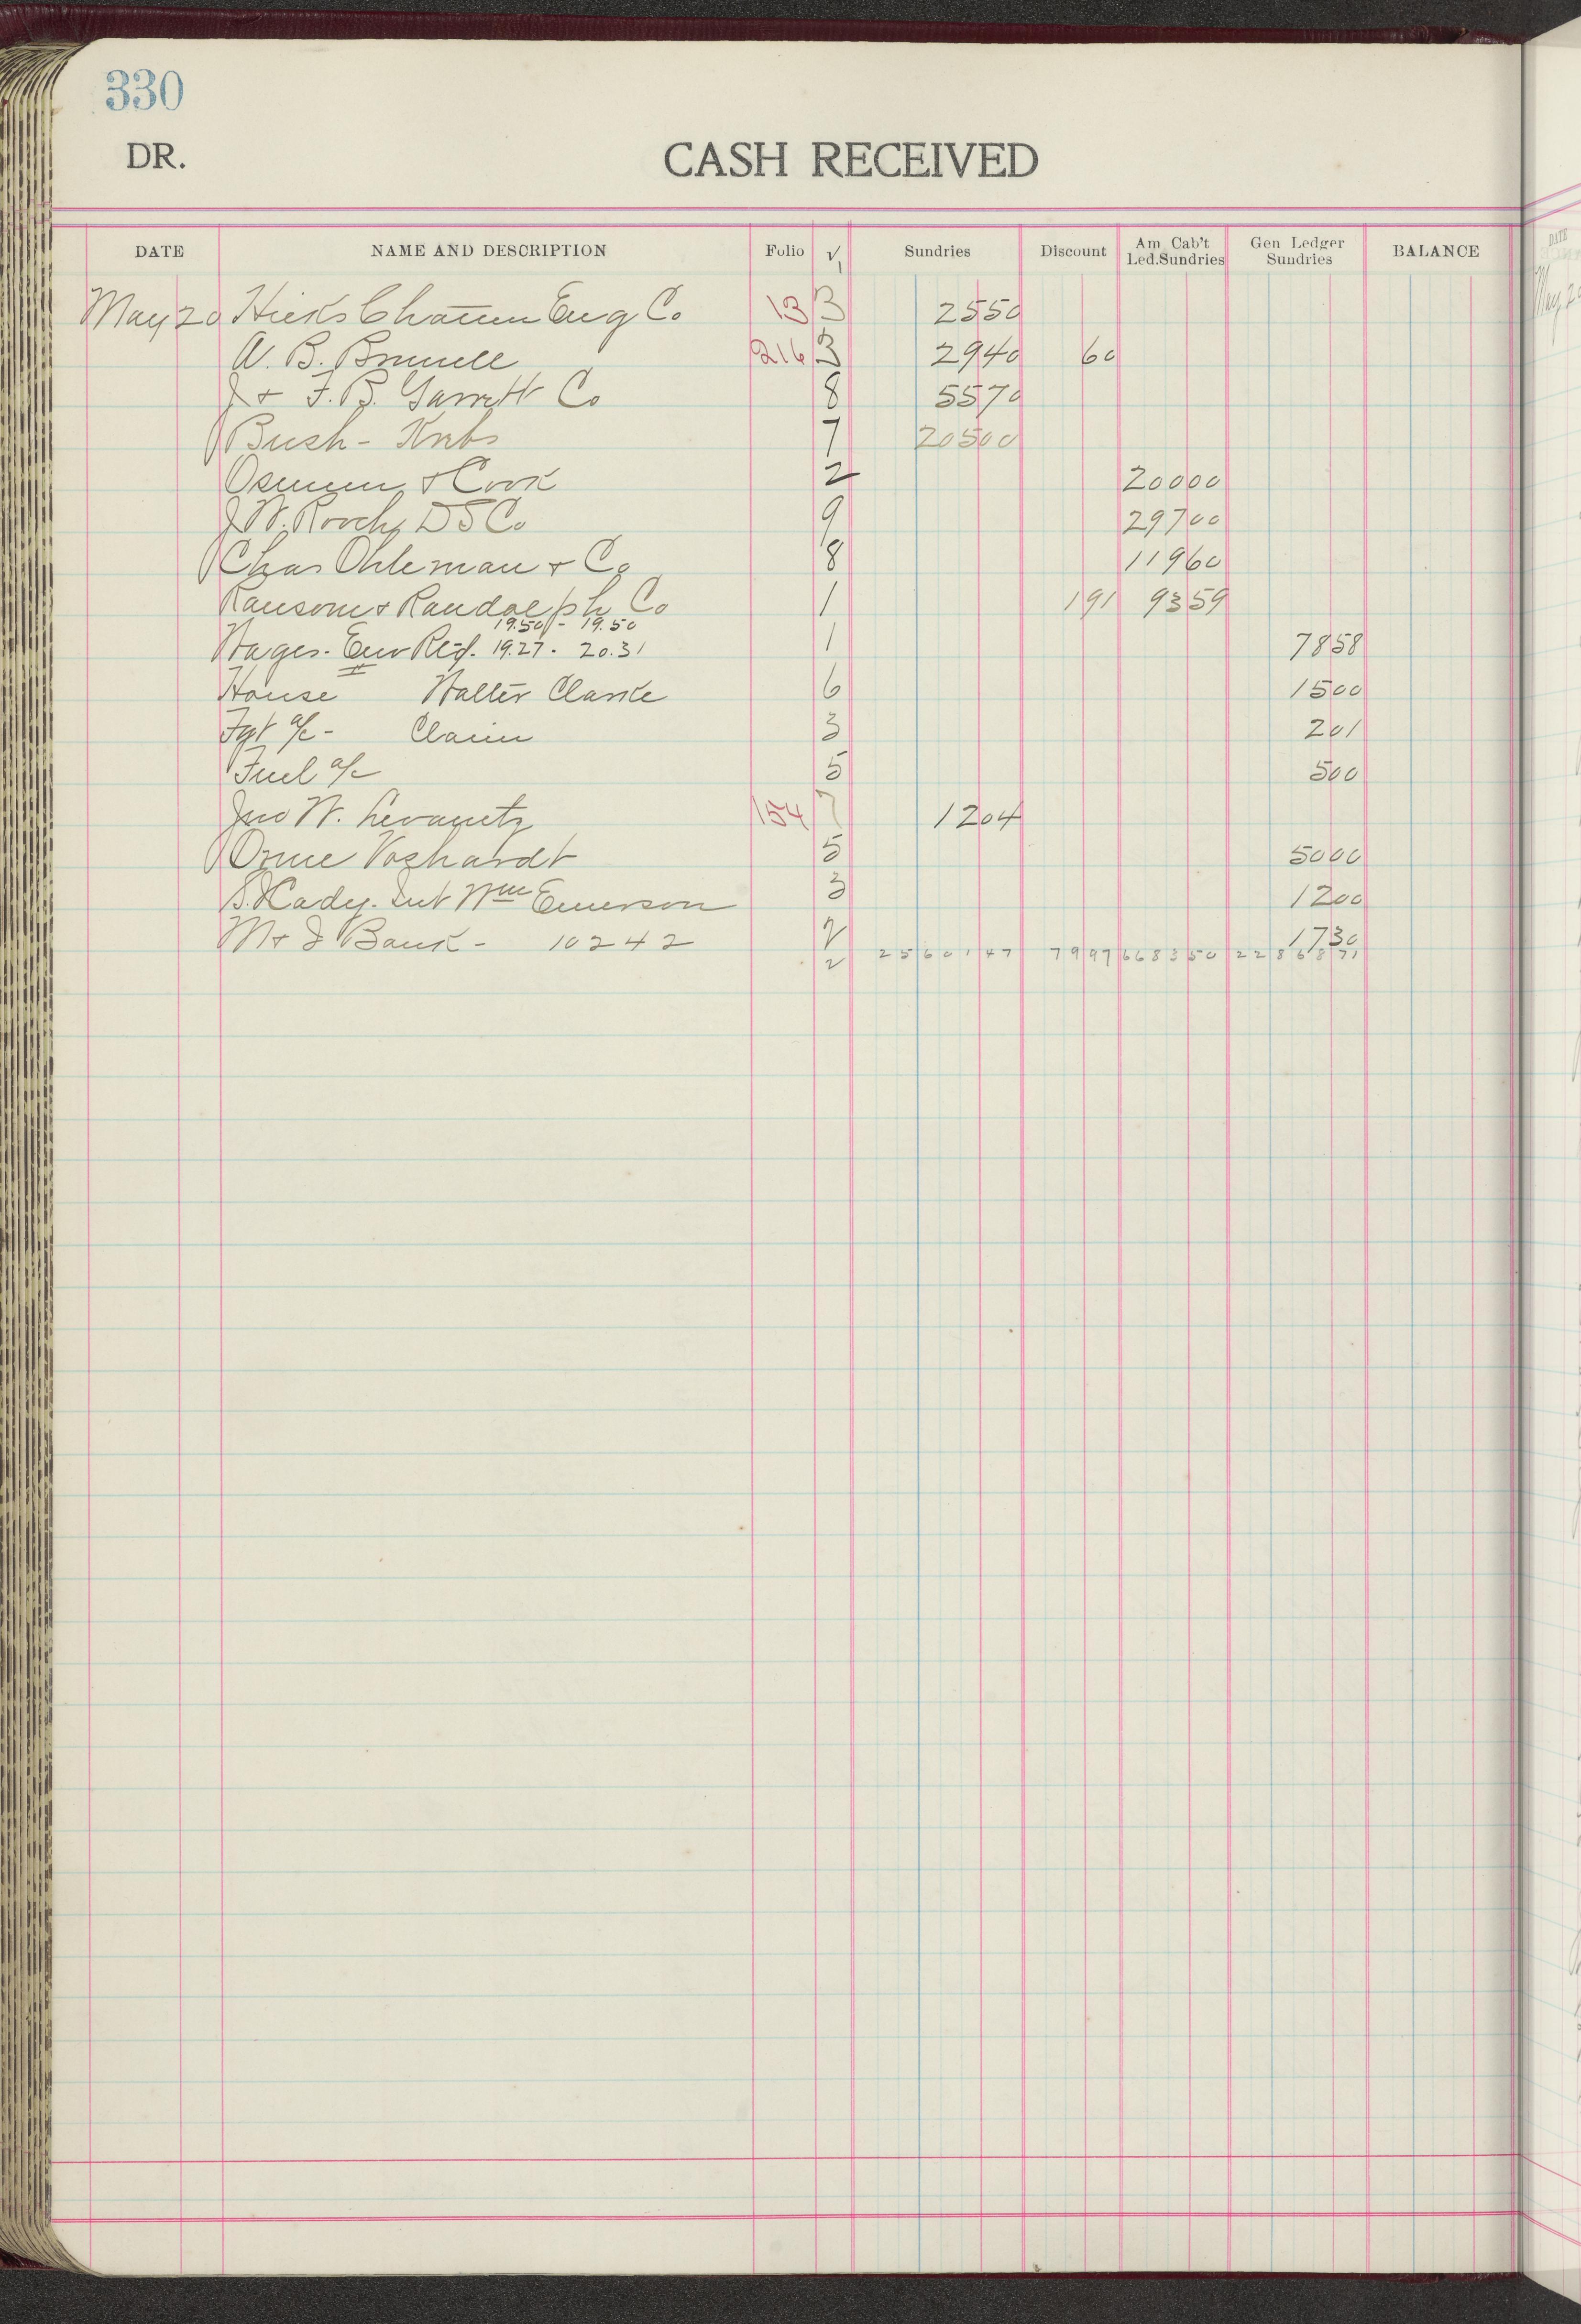 330
DR. CASH RECEIVED
DATE NAME AND DESCRIPTION Folio √ Sundries Discount Am Cab't Led.Sundries Gen Ledger Sundries BALANCE
May 20 Hicks Chatum Eng Co 13 3 2550
W. B. Burnell 216 3 2940 60
J & F. B. Garrett Co 8 5570
Bush - Krebs 7 20500
Osmun & Cook 2 20000
J W. Roach DS Co 9 29700
Chas Ohleman & Co 8 11960
Ransom & Randolph Co 1 191 9359
19.50 - 19.50
Wages - Env Red. 19.27 - 20.31 1 7858
House Walter Clarke 6 1500
Fgt a/c - Claim 3 201
Fuel a/c 5 500
Jno W. 154 7 1204
Orme Voshardt 5 5000
S. H Cady. Int Wm Emerson 3 1200
M & I Bank - 10242 2 1730
2 2560147 7997 668350 2286871
DATE
May 20